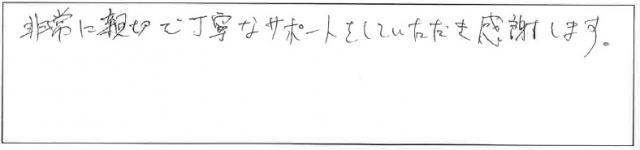 非常に親切で丁寧なサポートをしていただき感謝します。